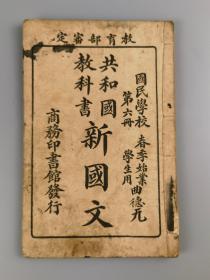 教育部審定
國民學校
第六冊
春季始業
學生用
共和國
教科書
新國文
商務印書館發行